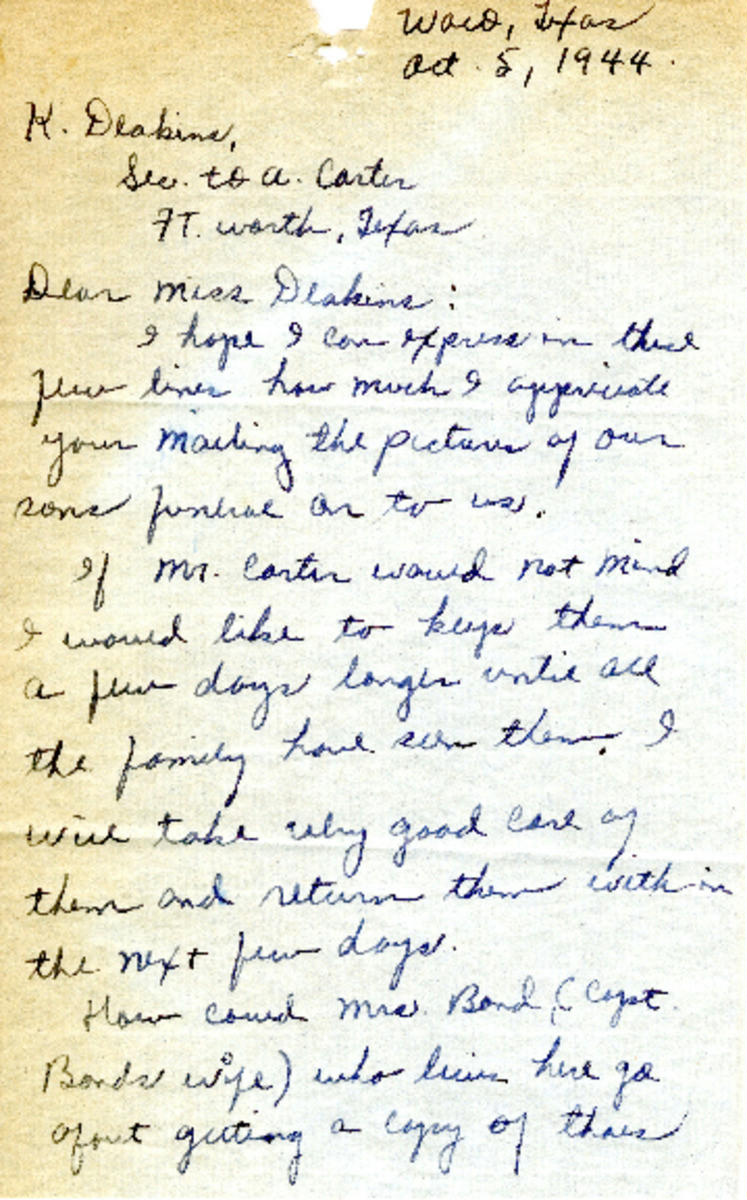 Waco, Texas
Oct. 5, 1944.
K. Deakins,
Sec. to A. Carter
FT. Worth, Texas
Dear Miss Deakins:
I hope I can express in these
few lines how much I appreciate
your mailing the pictures of our
sons funeral on to us.
If Mr. Carter would not mind
I would like to keep them
a few days longer until all
the family have seen them. I
will take very good care of
them and return them with in
the next few days.
How could Mrs. Bond, (Capt.
Bonds wife) who lives here go
about getting a copy of